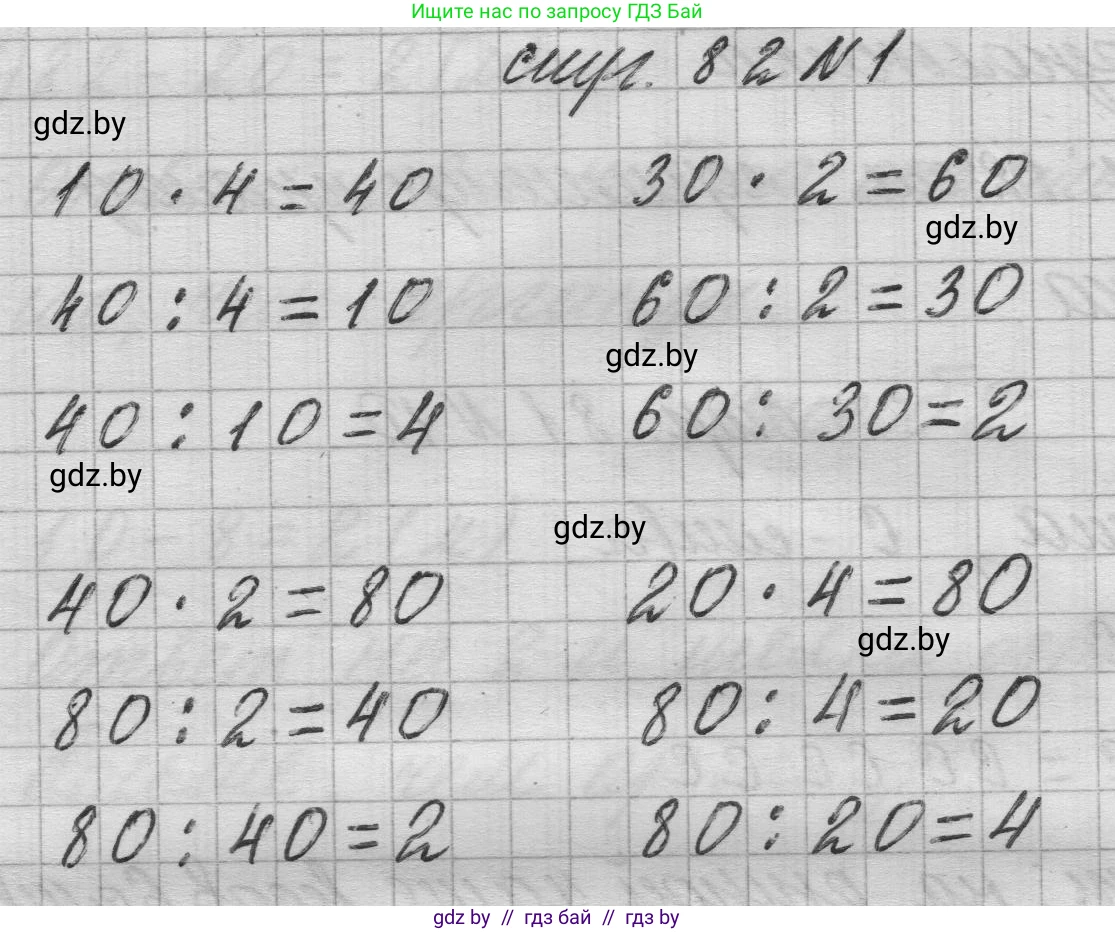 Ищите нас по запросу ГДЗ Бай
стр. 82 N 1
gdz.by
10 · 4 = 40 30 · 2 = 60
gdz.by
40 : 4 = 10 60 : 2 = 30
gdz.by
40 : 10 = 4 60 : 30 = 2
gdz.by
gdz.by
40 · 2 = 80 20 · 4 = 80
gdz.by
80 : 2 = 40 80 : 4 = 20
80 : 40 = 2 80 : 20 = 4
gdz by // гдз бай // гдз by